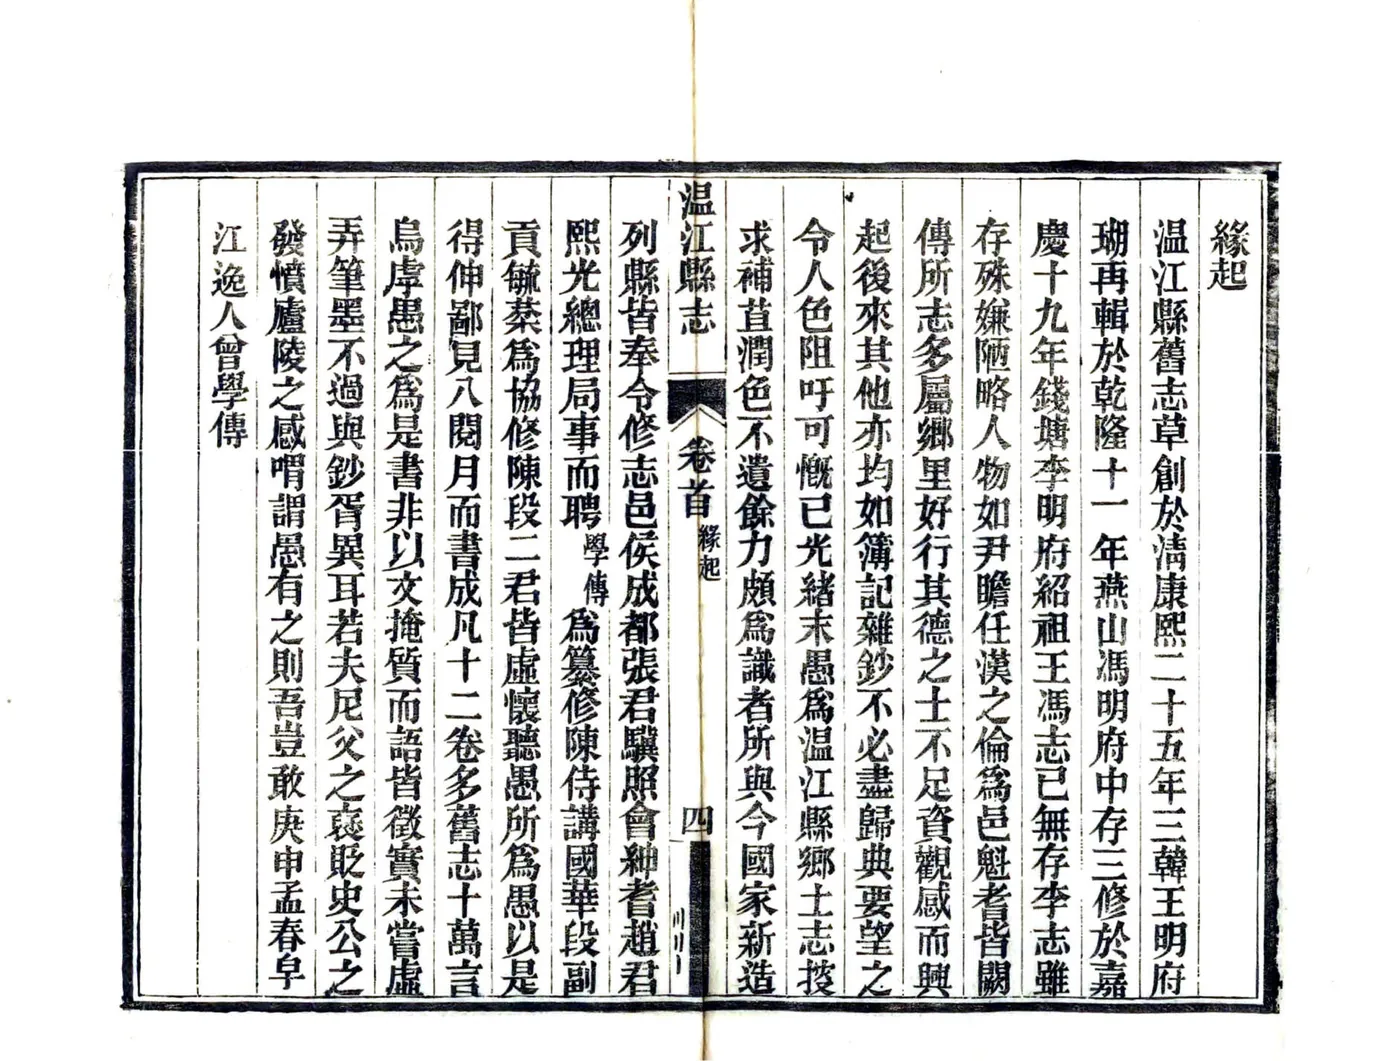 緣起
温江縣舊志草創於淸康熙二十五年三韓王明府
瑚再輯於乾隆十一年燕山馮明府中存三修於嘉
慶十九年錢塘李明府紹祖王馮志已無存李志雖
存殊嫌陋略人物如尹瞻任漢之倫爲邑魁耆皆闕
傳所志多屬鄉里好行其德之士不足資觀感而興
起後來其他亦均如簿記雜鈔不必盡歸典要望之
令人色阻吁可慨已光緒末愚爲温江縣鄉土志技
求補苴潤色不遺餘力頗爲識者所與今國家新造
温江縣志
卷首
緣起
四
列縣皆奉令修志邑侯成都張君驥照會紳耆趙君
熙光總理局事而聘學傳爲纂修陳侍講國華段副
貢毓棻爲協修陳段二君皆虛懷聽愚所爲愚以是
得伸鄙見八閱月而書成凡十二卷多舊志十萬言
烏虖愚之爲是書非以文掩質而語皆徵實未嘗虛
弄筆墨不過與鈔胥異耳若夫尼父之袞貶史公之
發憤廬陵之感喟謂愚有之則吾豈敢庚申孟春皁
江逸人曾學傳